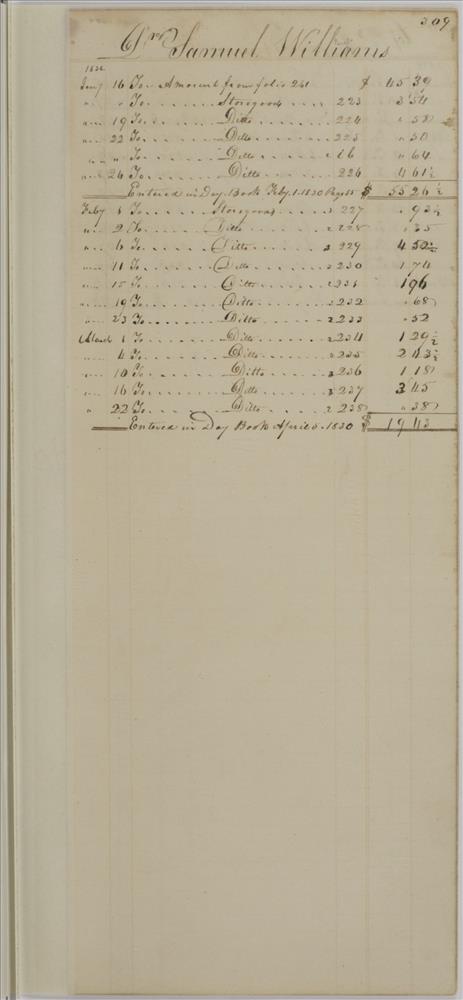 309
Dr. Samuel Williams
1830
Jany 16 To Amount from folio 241 $ 45 39
" " To Storegoods 223 3 54
" 19 To Ditto 224 " 58
" 22 To Ditto 225 " 50
" " To Ditto " ib " 64
" 26 To Ditto 226 4 61½
Entered in Day Book Feby. 1. 1830 $ 55 26½
Feby 1 To Storegoods " 227 " 93½
" 2 To Ditto " 228 " 35
" 6 To Ditto " 229 4 52½
" 11 To Ditto " 230 1 74
" 15 To Ditto " 231 1 96
" 19 To Ditto " 232 " 68
" 23 To Ditto " 233 " 52
March 1 To Ditto " 234 1 29½
" 4 To Ditto " 235 2 43½
" 10 To Ditto " 236 1 18
" 16 To Ditto " 237 3 45
" 22 To Ditto " 238 " 38
Entered in Day Book April 5. 1830 $ 19 43